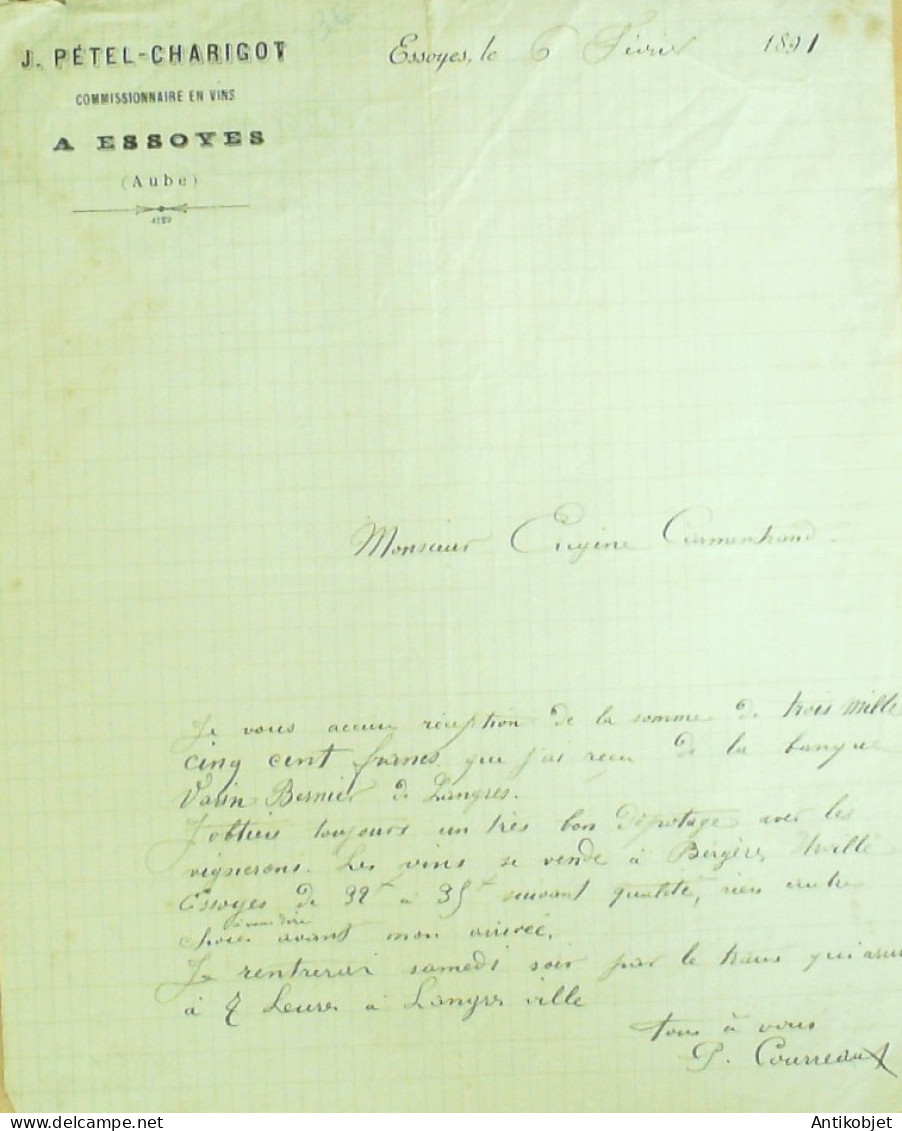 J. PÉTEL-CHARIGOT
COMMISSIONNAIRE EN VINS
A ESSOYES
(Aube)
Essoyes, le 6 Février 1891
Monsieur Eugène
Je vous accuse réception de la somme de trois mille
cinq cent francs que j'ai reçu de la banque
Varin Bernier de Langres.
J'obtiens toujours un très bon dépotage avec les
vignerons. Les vins se vende à Bergères Urville
Essoyes de 32f à 35f suivant qualité, rien autre
chose à vous dire avant mon arrivée.
Je rentrerai samedi soir par le train qui
à 7 heures à Langres ville
tous à vous
P. Courreaux
Antikobjet